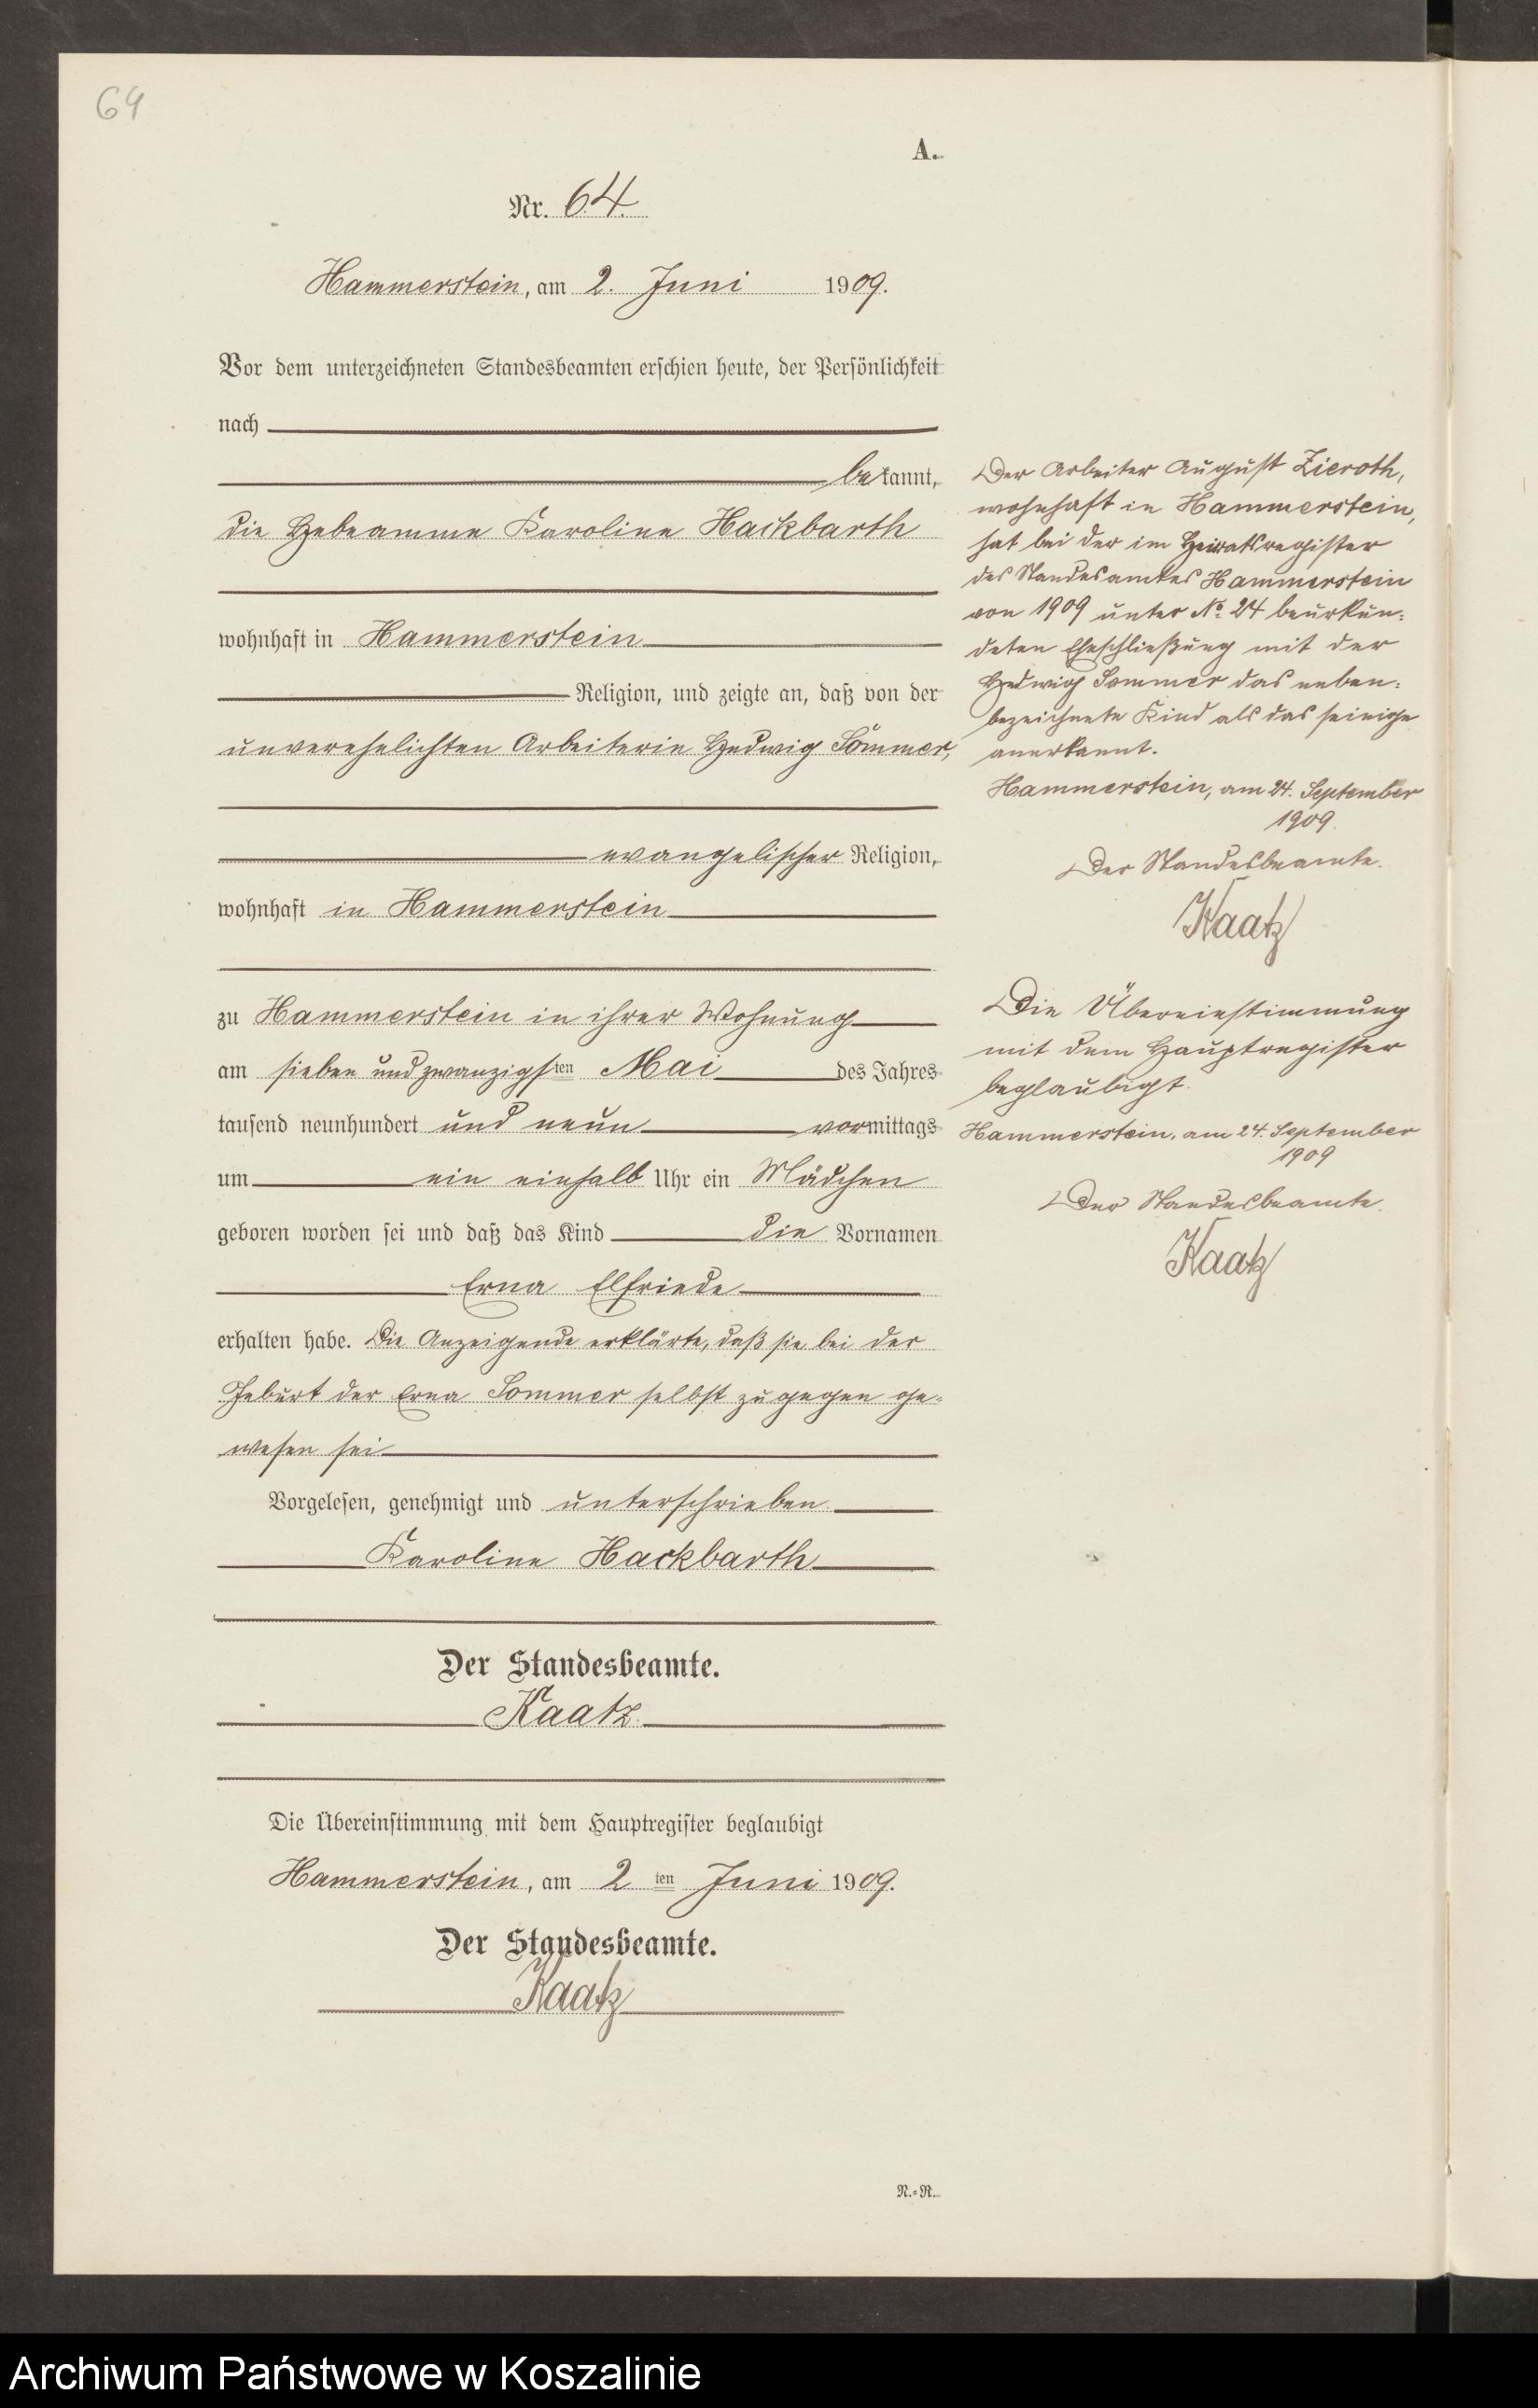 64
A.
Nr. 64.
Hammerstein, am 2. Juni 1909.
Vor dem unterzeichneten Standesbeamten erschien heute, der Persönlichkeit
nach
bekannt,
die Hebeamme Karoline Hackbarth
wohnhaft in Hammerstein
Religion, und zeigte an, daß von der
unverehelichten Arbeiterin Hedwig Sommer,
evangelischer Religion,
wohnhaft in Hammerstein
zu Hammerstein in ihrer Wohnung
am sieben und zwanzigsten Mai des Jahres
tausend neunhundert und neun vormittags
um ein einhalb Uhr ein Mädchen
geboren worden sei und daß das Kind die Vornamen
Erna Elfriede
erhalten habe. Die Anzeigende erklärte, daß sie bei der
Geburt der Erna Sommer selbst zugegen ge-
wesen sei
Vorgelesen, genehmigt und unterschrieben
Karoline Hackbarth
Der Standesbeamte.
Kaatz.
Die Übereinstimmung mit dem Hauptregister beglaubigt
Hammerstein, am 2 ten Juni 1909.
Der Standesbeamte.
Kaatz
N.=R.
Der Arbeiter August Zieroth,
wohnhaft in Hammerstein,
hat bei der im Heiratsregister
des Standesamtes Hammerstein
von 1909 unter No. 24 beurkun-
deten Eheschließung mit der
Hedwig Sommer das neben-
bezeichnete Kind als das seinige
anerkannt.
Hammerstein, am 24. September
1909.
Der Standesbeamte.
Kaatz
Die Übereinstimmung
mit dem Hauptregister
beglaubigt.
Hammerstein, am 24. September
1909
Der Standesbeamte.
Kaatz
Archiwum Państwowe w Koszalinie